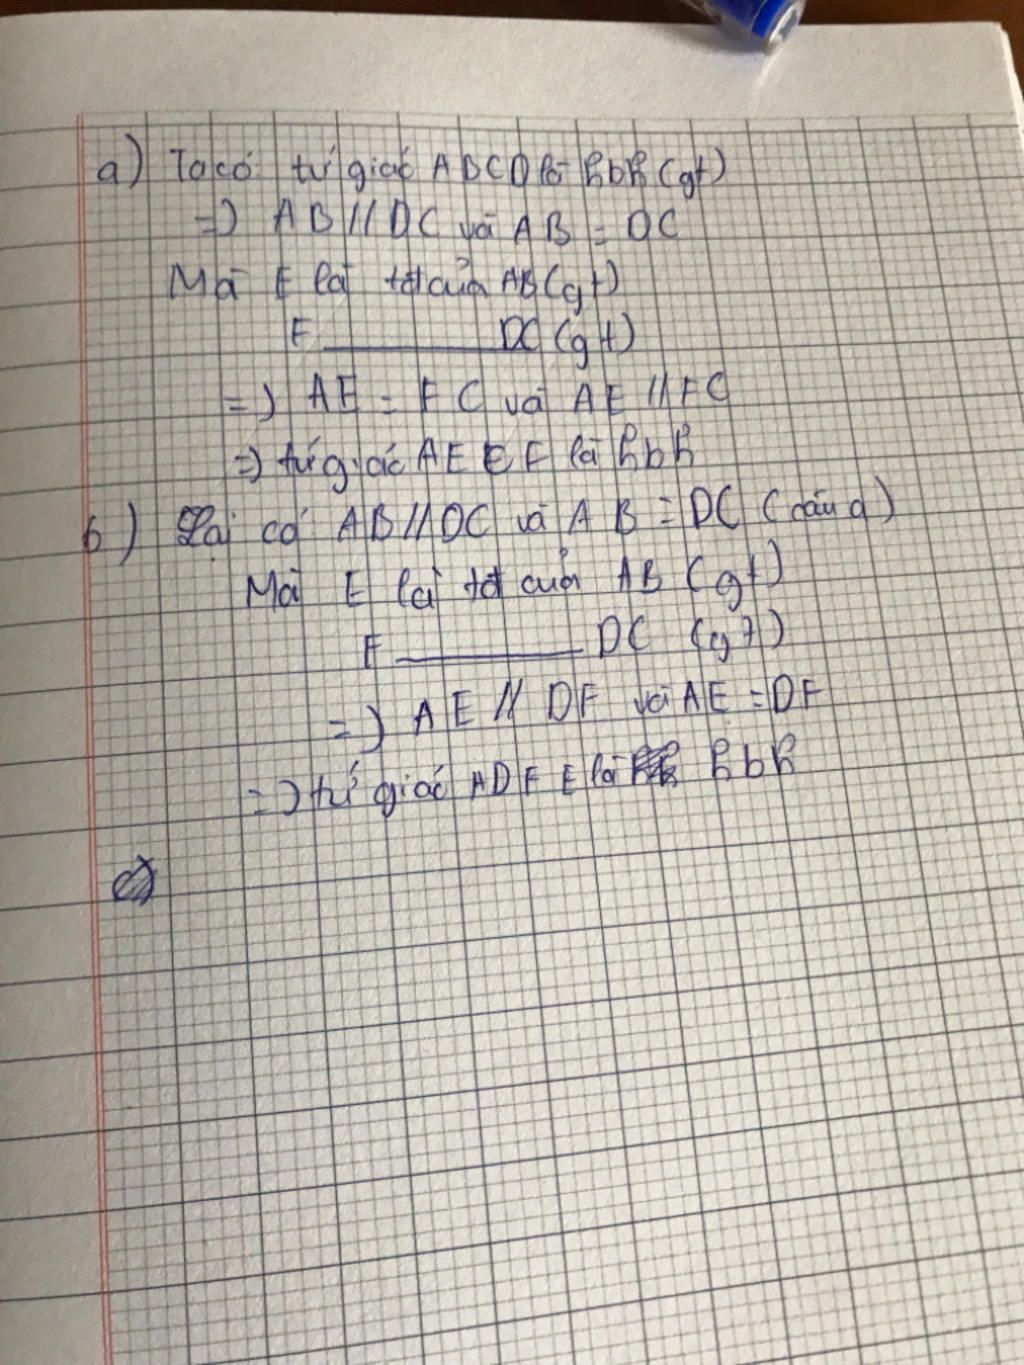 a) Ta có tứ giác ABCD là hbh (gt)
=) AB // DC và AB = DC
Mà E là tđ của AB (gt)
F ________ DC (gt)
=) AE = FC và AE // FC
=) tứ giác AECF là hbh
b) Lại có AB // DC và AB = DC (câu a)
Mà E là tđ của AB (gt)
F ________ DC (gt)
=) AE // DF và AE = DF
=) tứ giác ADFE là hbh
c)